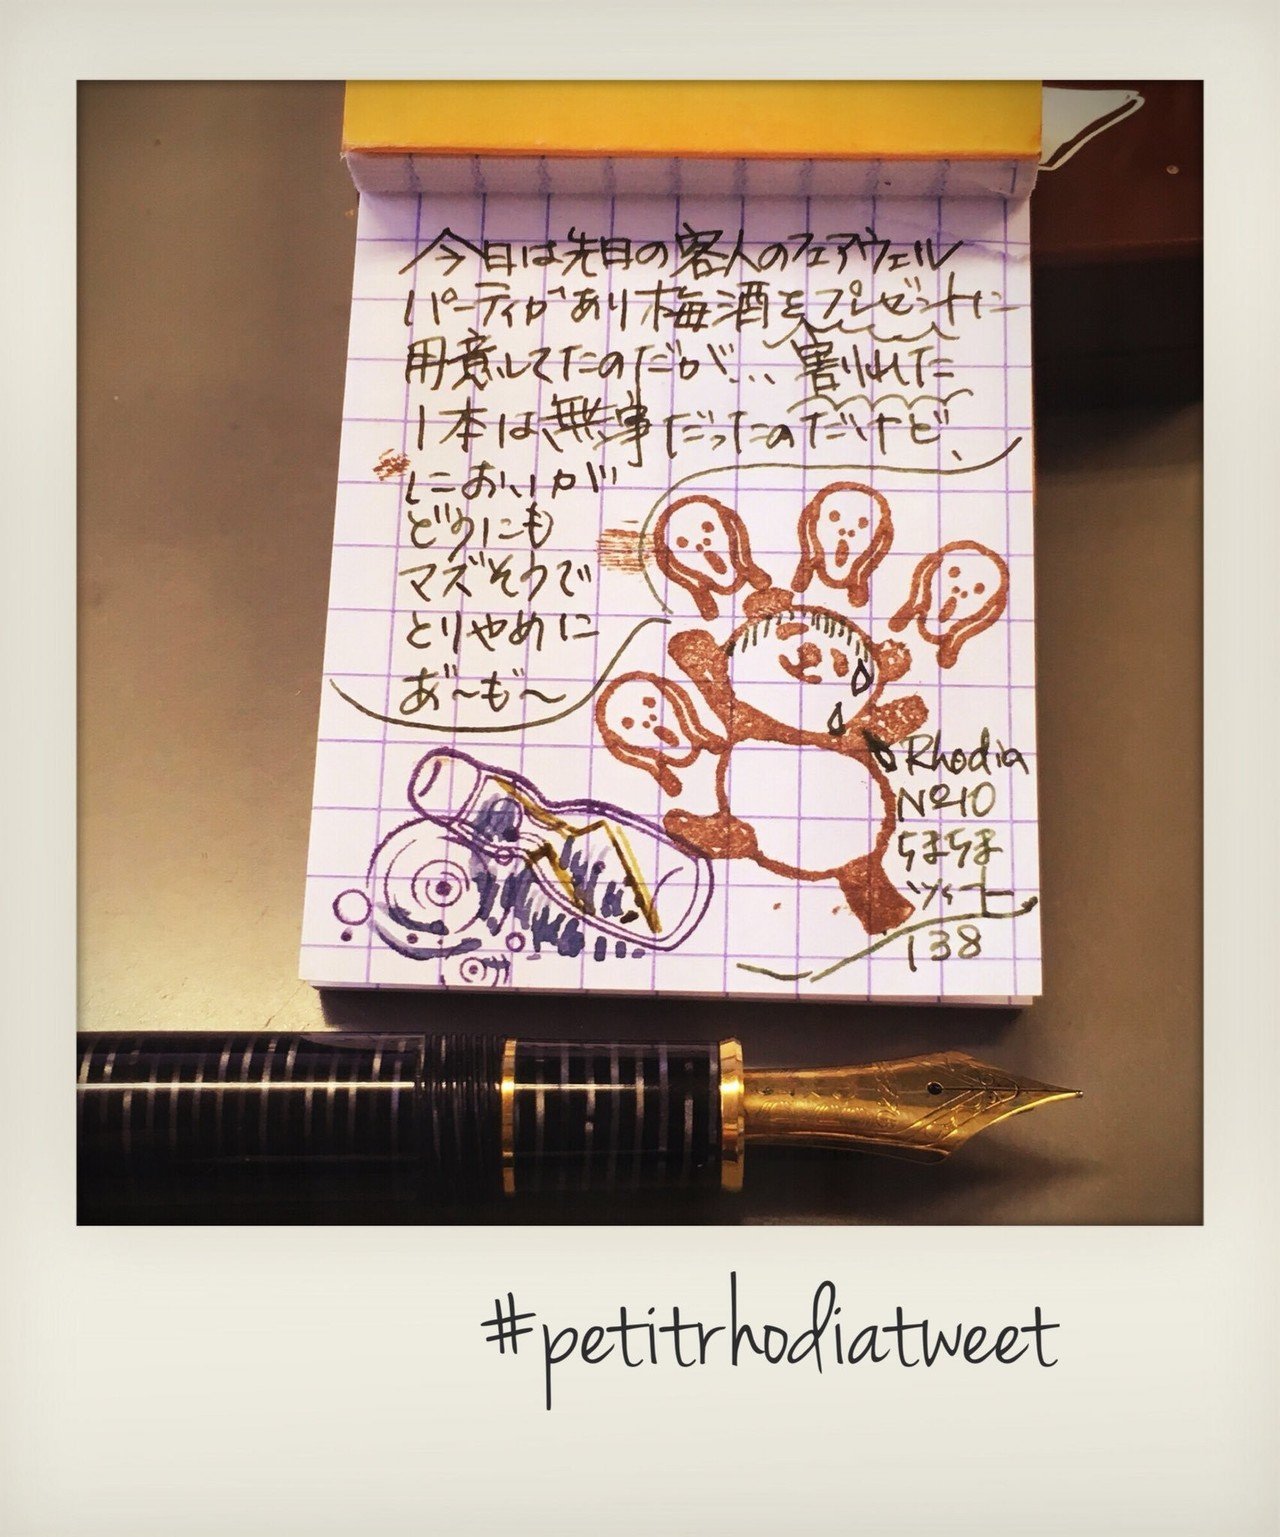 今日は先日の客人のフェアウェル
パーティがあり梅酒をプレゼントに
用意してたのだが… 割れた
1本は無事だったのだけど、
においが
どうにも
マズそうで
とりやめに
あ゛〜も゛〜
Rhodia
No10
ちまちま
ツイート
138
#petitrhodiatweet